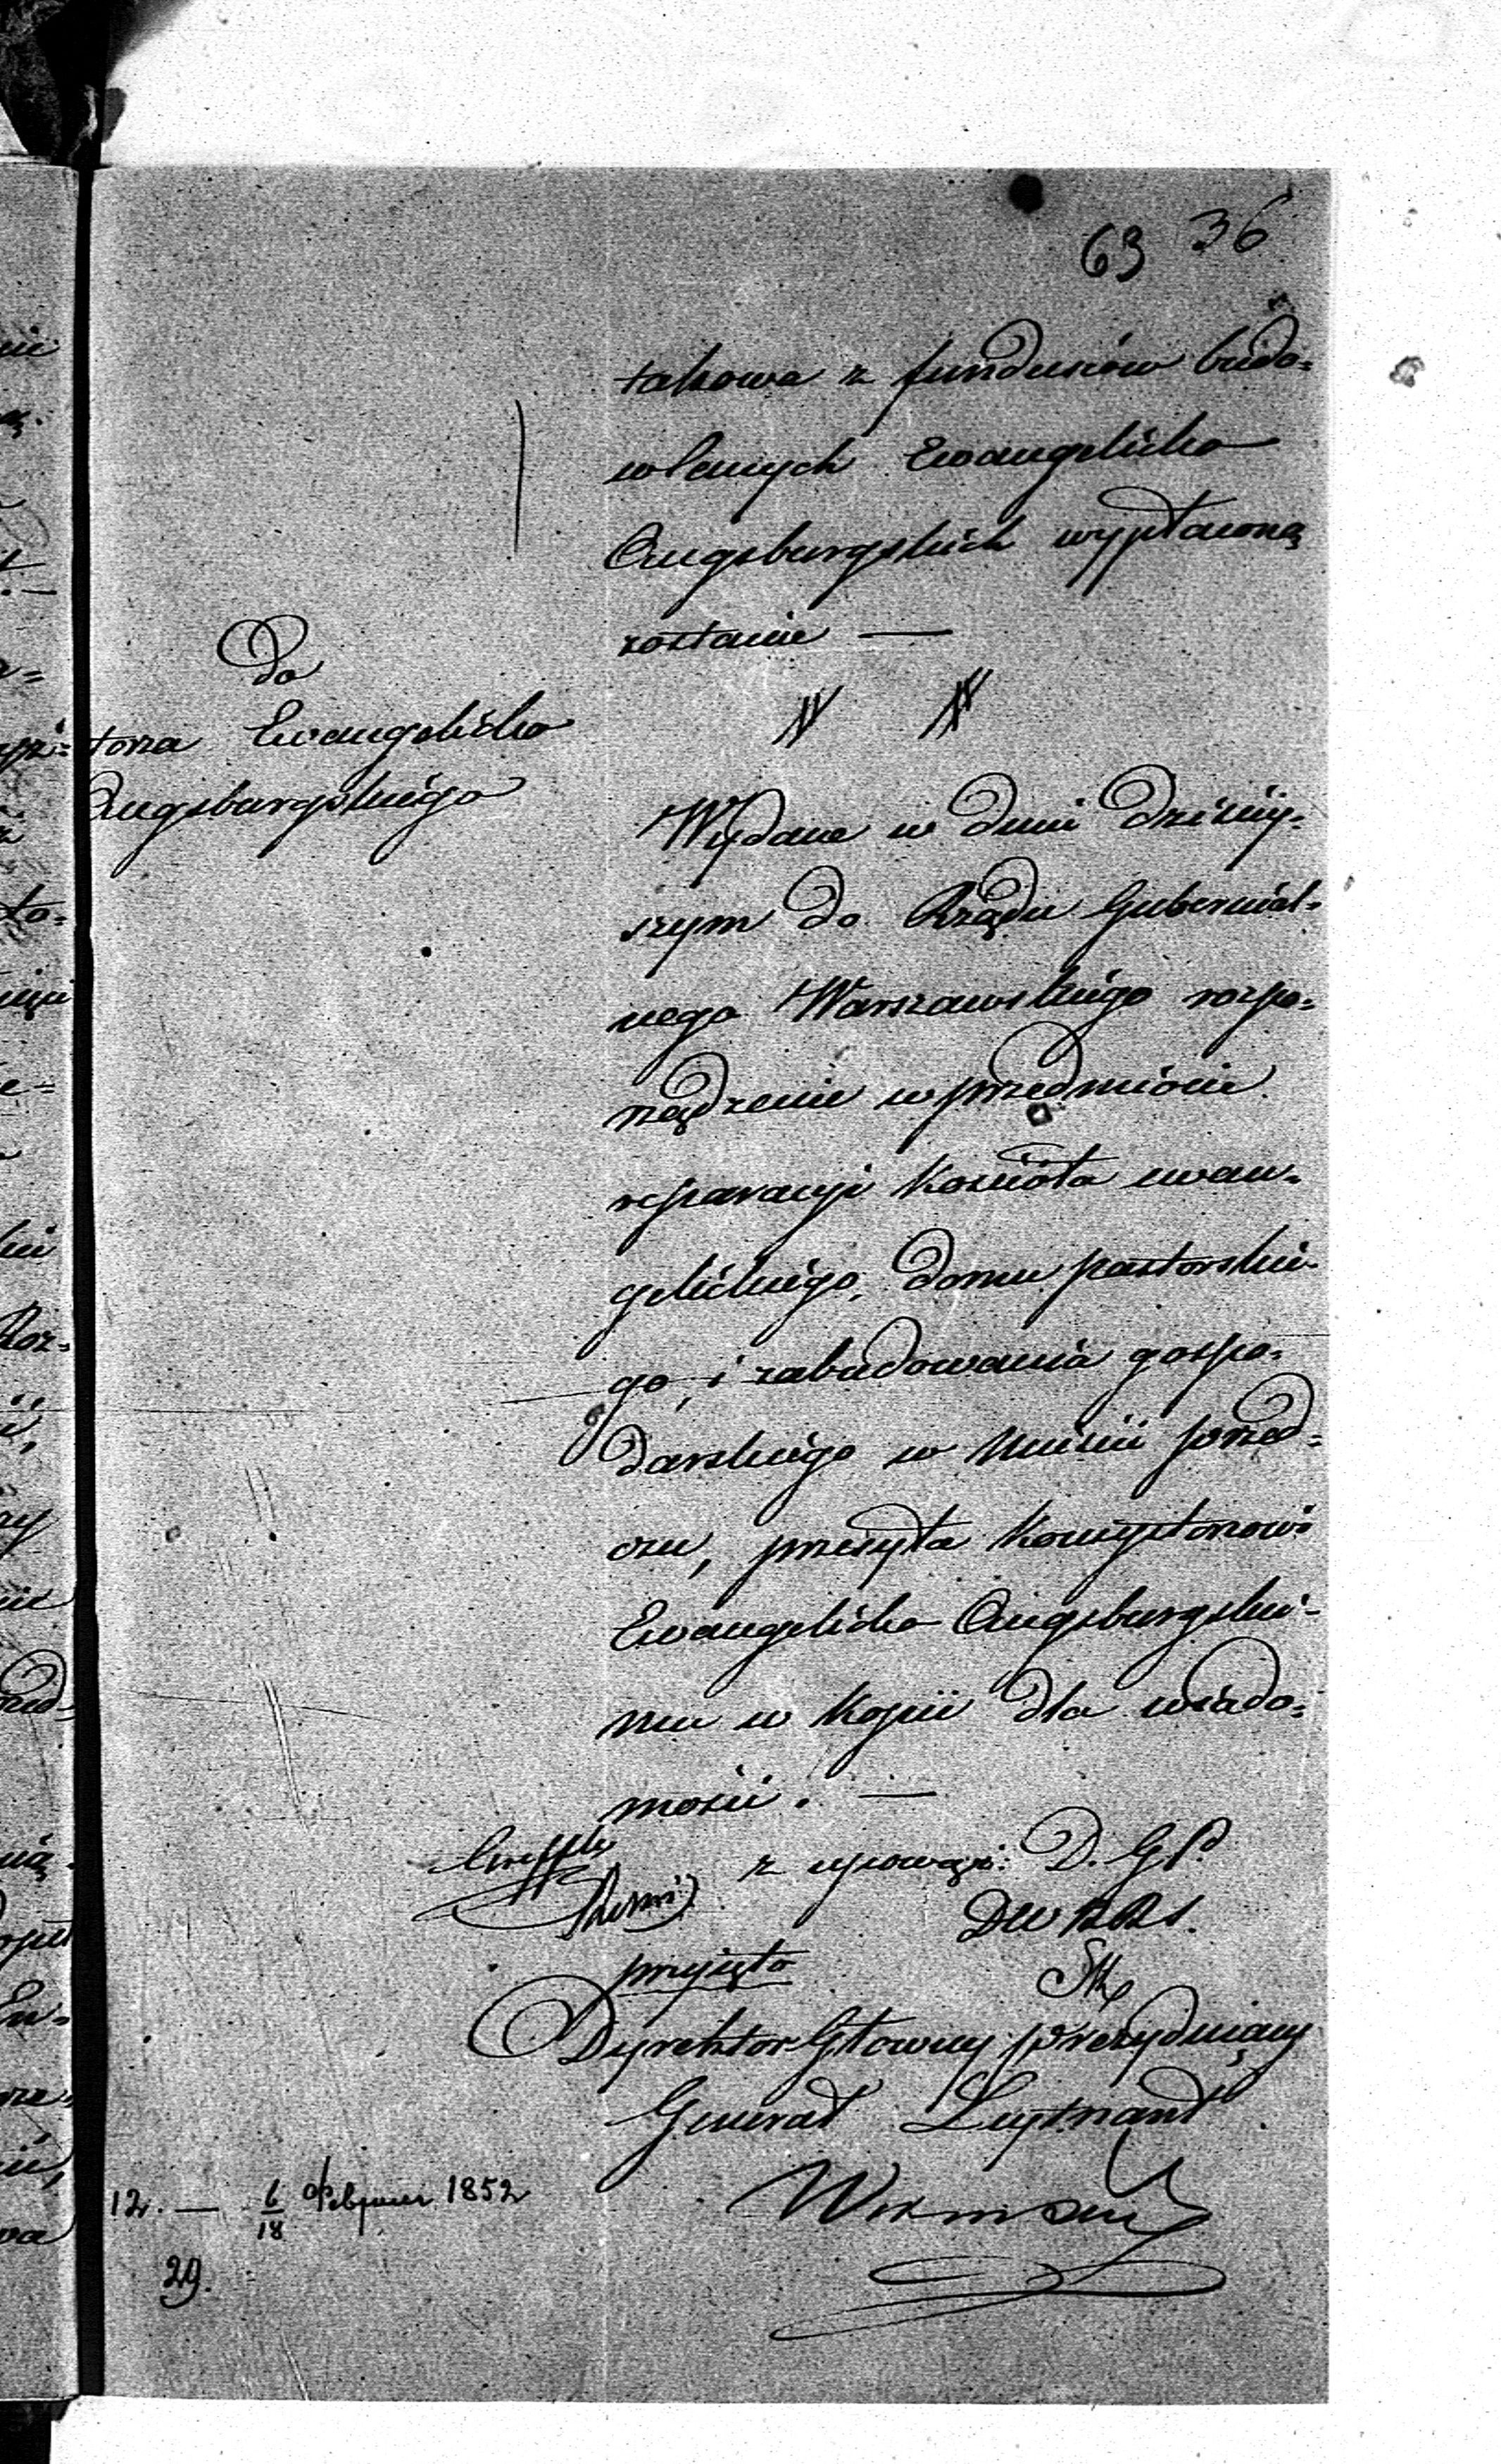 63 36
takowa z funduszów budo=
wlanych Ewangelicko
Augsburgskich wypłaconą
zostanie —
Do
torza Ewangelicko
Augsburgskiego
Wydane w dniu dzisiey=
szym do Rządu Gubernial=
nego Warszawskiego rozpo=
rządzenie w przedmiocie
reparacyi Kościoła ewan=
gelickiego, domu pastorskie=
go, i zabudowania gospo=
darskiego w Mieście Przed=
czu, przesyła Konsystorzowi
Ewangelicko Augsburgskie=
mu w Kopii dla wiado=
mości. —
z upoważ: D. G. P.
przyięto
Dyrektor Główny Prezyduiący
Generał Leytnant
12. — 6/18 Февраля 1852
29.